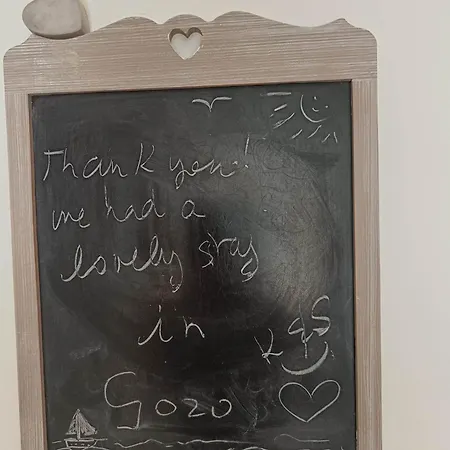 Thank you!
we had a
lovely stay
in
K&S
Gozo